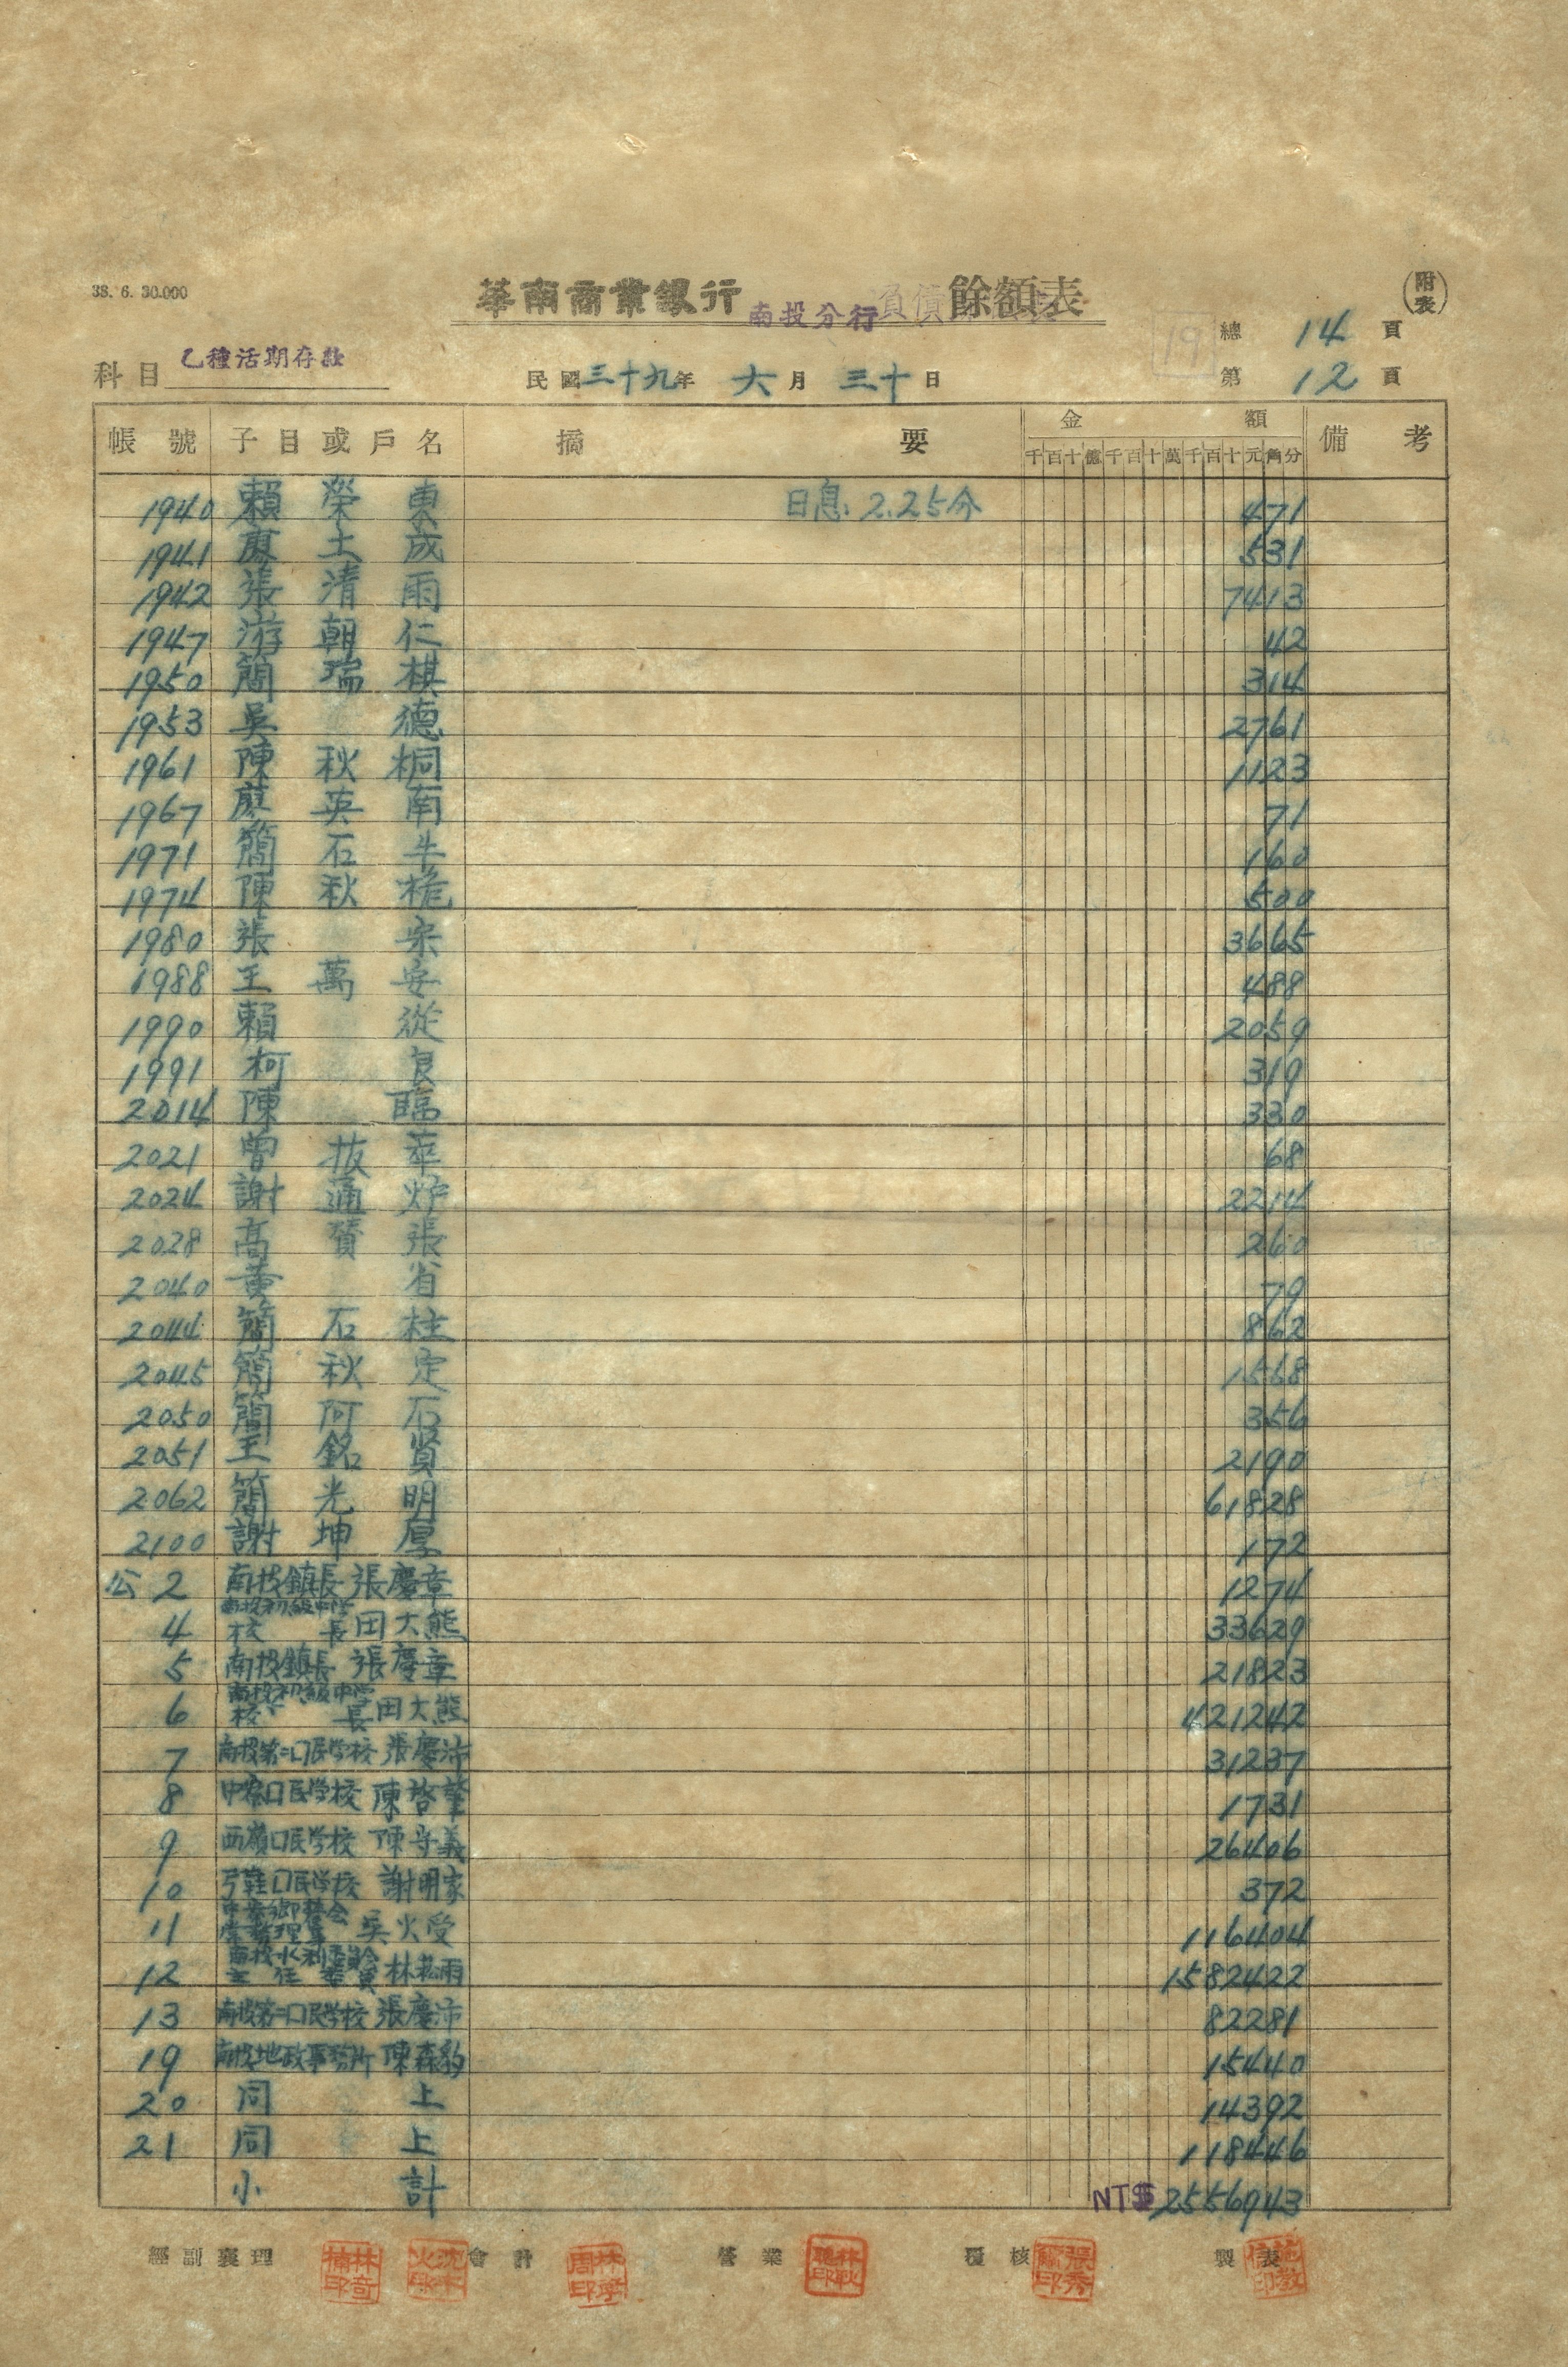 38. 6. 30.000
華南商業銀行 南投分行 負債 餘額表
(附表)
19
總 14 頁
科目 乙種活期存款
民國三十九年 六月 三十日
第 12 頁
帳號 子目或戶名 摘要 金額 備考
千百十億千百十萬千百十元角分
1940 賴榮東 日息 2.25分 471
1941 廖土成 531
1942 張清雨 7413
1947 游朝仁 42
1950 簡瑞棋 314
1953 吳德 2761
1961 陳秋桐 1123
1967 廖英南 71
1971 簡石牛 160
1974 陳秋桅 500
1980 張宗 3665
1988 王萬安 488
1990 賴從 2059
1991 柯良 319
2014 陳臨 330
2021 曾拔萃 68
2024 謝通炉 2214
2028 高賛張 260
2040 黃省 79
2044 簡石柱 862
2045 簡秋定 1568
2050 簡阿石 356
2051 王銘賢 2190
2062 簡光明 61828
2100 謝坤厚 172
公 2 南投鎮長 張慶章 1274
南投初級中学
4 校長 田大熊 33629
5 南投鎮長 張慶章 21823
南投初級中学
6 校長 田大熊 421242
7 南投第二口民学校 張慶沛 31237
8 中寮口民学校 陳啓肇 1731
9 西嶺口民学校 陳守義 26406
10 弓鞋口民学校 謝明家 372
11 吳火受 116404
南投水利委員会
12 主任委員 林花雨 1582422
13 南投第二口民学校 張慶沛 82281
19 南投地政事務所 陳森豹 15440
20 同上 14392
21 同上 118446
小計 NT$2556943
經副襄理 會計 營業 覆核 製表